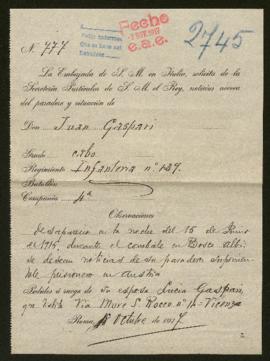 Pedir informes
Fecho
e.a.e.
2745
N. 777
La Embajada de S. M. en Italia, solicita de la
Secretaría Particular de S. M. el Rey, noticias acerca
del paradero y situación de
Don Juan Gaspari
Grado cabo
Regimiento Infanteria n° 127.
Batallón
Compañía 4ª
Observaciones
Desaparecio en la noche del 15 de
1915, durante el combate en Bosco
se desean noticias de su paradero
prisionero en Austria
Pedidos á ruego de su esposa Lucia Gaspari,
que habita Via Mure S. Rocco n° 12 - Vicenza
Roma, Octubre de 1917